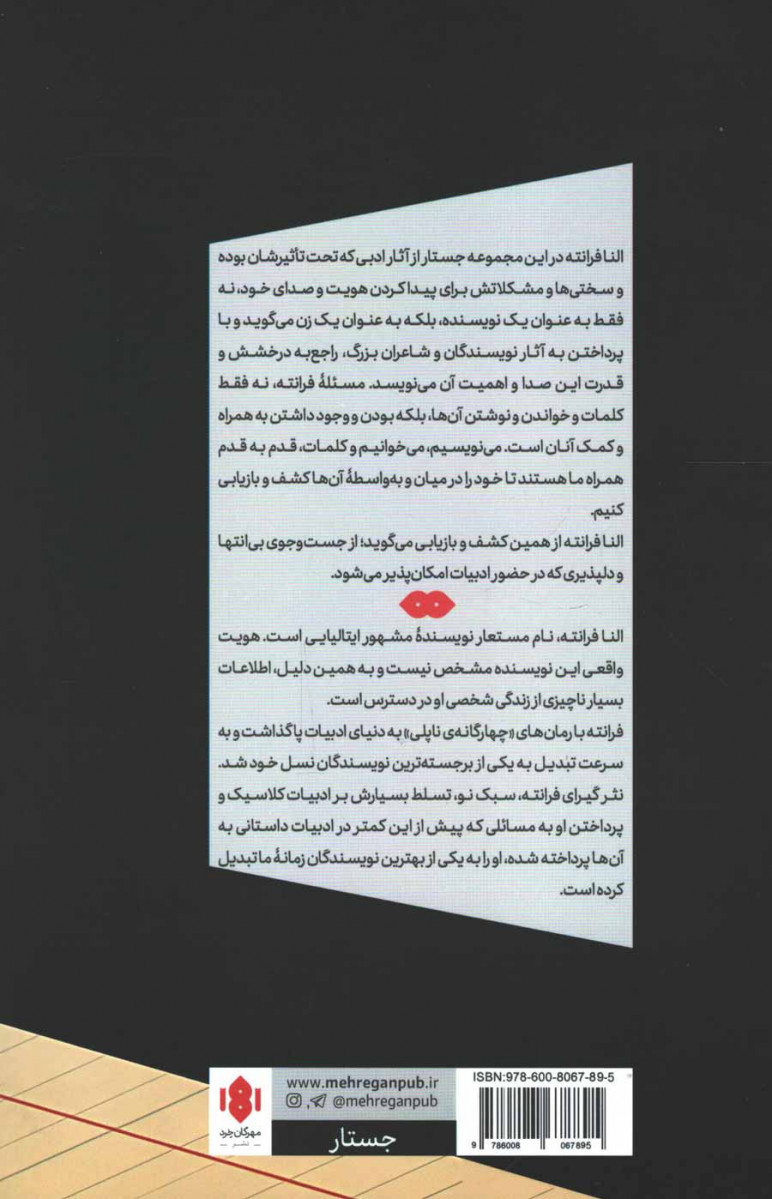 النا فرانته در این مجموعه جستار از آثار ادبی که تحت تأثیرشان بوده
و سختی‌ها و مشکلاتش برای پیدا کردن هویت و صدای خود، نه
فقط به عنوان یک نویسنده، بلکه به عنوان یک زن می‌گوید و با
پرداختن به آثار نویسندگان و شاعران بزرگ، راجع‌به درخشش و
قدرت این صدا و اهمیت آن می‌نویسد. مسئلهٔ فرانته، نه فقط
کلمات و خواندن و نوشتن آن‌ها، بلکه بودن و وجود داشتن به همراه
و کمک آنان است. می‌نویسیم، می‌خوانیم و کلمات، قدم به قدم
همراه ما هستند تا خود را در میان و به‌واسطهٔ آن‌ها کشف و بازیابی
کنیم.
النا فرانته از همین کشف و بازیابی می‌گوید؛ از جست‌وجوی بی‌انتها
و دلپذیری که در حضور ادبیات امکان‌پذیر می‌شود.
النا فرانته، نام مستعار نویسندهٔ مشهور ایتالیایی است. هویت
واقعی این نویسنده مشخص نیست و به همین دلیل، اطلاعات
بسیار ناچیزی از زندگی شخصی او در دسترس است.
فرانته با رمان‌های «چهارگانه‌ی ناپلی» به دنیای ادبیات پا گذاشت و به
سرعت تبدیل به یکی از برجسته‌ترین نویسندگان نسل خود شد.
نثر گیرای فرانته، سبک نو، تسلط بسیارش بر ادبیات کلاسیک و
پرداختن او به مسائلی که پیش از این کمتر در ادبیات داستانی به
آن‌ها پرداخته شده، او را به یکی از بهترین نویسندگان زمانهٔ ما تبدیل
کرده است.
ISBN:978-600-8067-89-5
9 786008 067895
www.mehreganpub.ir
@mehreganpub
جستار
مهرگان خرد
نشر